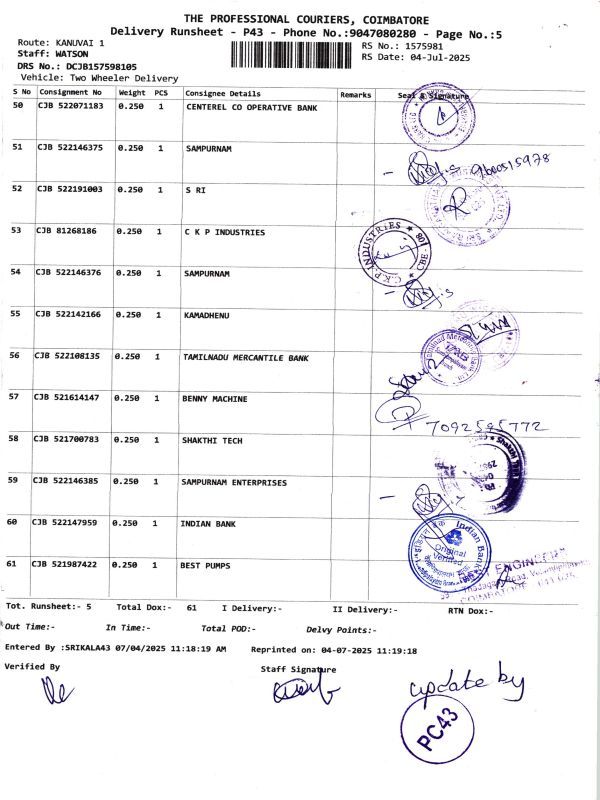 THE PROFESSIONAL COURIERS, COIMBATORE
Delivery Runsheet - P43 - Phone No.:9047080280 - Page No.:5
Route: KANUVAI 1
Staff: WATSON
DRS No.: DCJB157598105
Vehicle: Two Wheeler Delivery
RS No.: 1575981
RS Date: 04-Jul-2025
S No Consignment No Weight PCS Consignee Details Remarks Seal & Signature
50 CJB 522071183 0.250 1 CENTEREL CO OPERATIVE BANK
51 CJB 522146375 0.250 1 SAMPURNAM
9600515978
52 CJB 522191003 0.250 1 S RI
53 CJB 81268186 0.250 1 C K P INDUSTRIES
C.K.P. INDUSTRIES ★ CBE - 801 ★
54 CJB 522146376 0.250 1 SAMPURNAM
55 CJB 522142166 0.250 1 KAMADHENU
56 CJB 522108135 0.250 1 TAMILNADU MERCANTILE BANK
57 CJB 521614147 0.250 1 BENNY MACHINE
7092595772
58 CJB 521700783 0.250 1 SHAKTHI TECH
Shakthi
59 CJB 522146385 0.250 1 SAMPURNAM ENTERPRISES
60 CJB 522147959 0.250 1 INDIAN BANK
Indian Bank
Original
Verified
61 CJB 521987422 0.250 1 BEST PUMPS
Tot. Runsheet:- 5 Total Dox:- 61 I Delivery:- II Delivery:- RTN Dox:-
Out Time:- In Time:- Total POD:- Delvy Points:-
Entered By :SRIKALA43 07/04/2025 11:18:19 AM Reprinted on: 04-07-2025 11:19:18
Verified By Staff Signature
update by
PC43